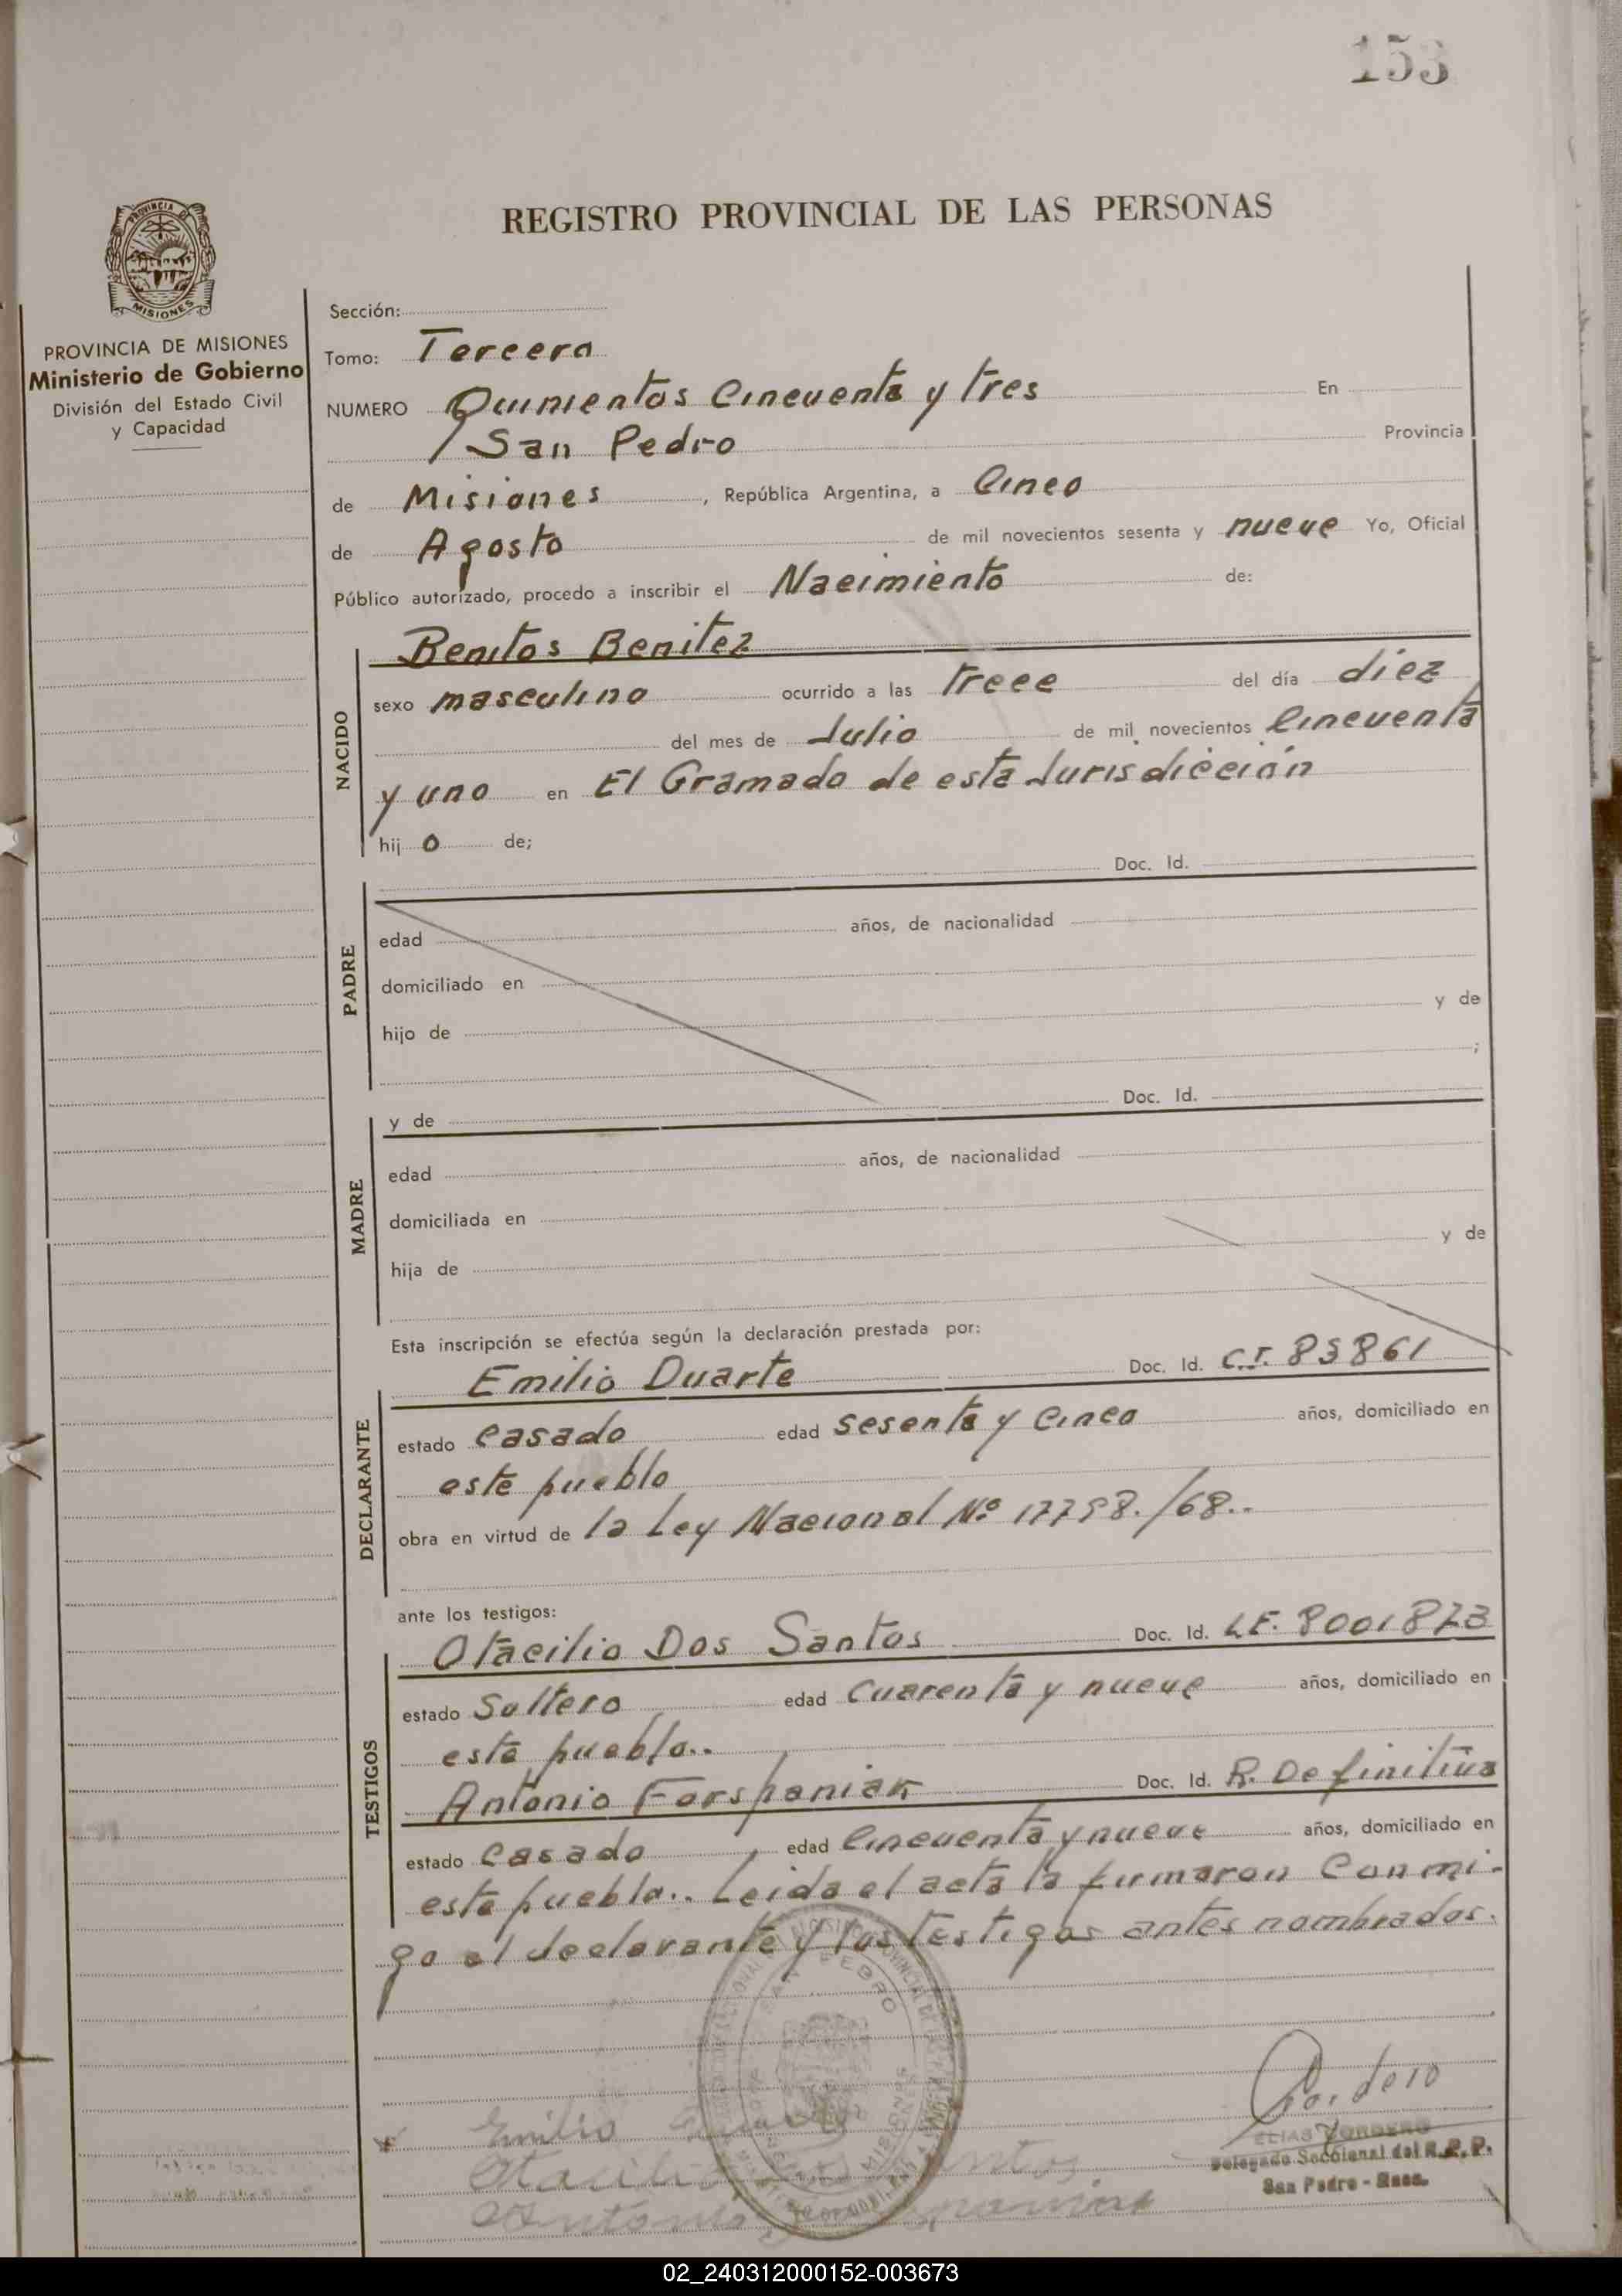 153
REGISTRO PROVINCIAL DE LAS PERSONAS
PROVINCIA DE
MISIONES
PROVINCIA DE MISIONES
Ministerio de Gobierno
División del Estado Civil
y Capacidad
Sección:
Tomo: Tercera
NUMERO Quinientos Cincuenta y tres En
San Pedro Provincia
de Misiones, República Argentina, a Cinco
de Agosto de mil novecientos sesenta y nueve Yo, Oficial
Público autorizado, procedo a inscribir el Nacimiento de:
NACIDO
Benitos Benitez
sexo masculino ocurrido a las trece del día diez
del mes de Julio de mil novecientos Cincuenta
y uno en El Gramado de esta Jurisdicción
hij o de;
PADRE
Doc. Id.
edad años, de nacionalidad
domiciliado en
hijo de y de
;
MADRE
y de Doc. Id.
edad años, de nacionalidad
domiciliada en
hija de y de
Esta inscripción se efectúa según la declaración prestada por:
DECLARANTE
Emilio Duarte Doc. Id. C.I. 83861
estado casado edad sesenta y cinco años, domiciliado en
este pueblo
obra en virtud de la Ley Nacional Nº 17798./68..
ante los testigos:
TESTIGOS
Otacilio Dos Santos Doc. Id. LE. 8001873
estado Soltero edad Cuarenta y nueve años, domiciliado en
este pueblo..
Antonio Forspaniak Doc. Id. R. Definitiva
estado Casado edad Cincuenta y nueve años, domiciliado en
este pueblo.. Leida el acta la firmaron Conmi-
go el declarante y los testigos antes nombrados.
SAN PEDRO
MISIONES
Cordero
Emilio
ELIAS CORDERO
Delegado Seccional del R. P. P.
Otacilio Santos
San Pedro - Mnes.
Antonio
02_240312000152-003673